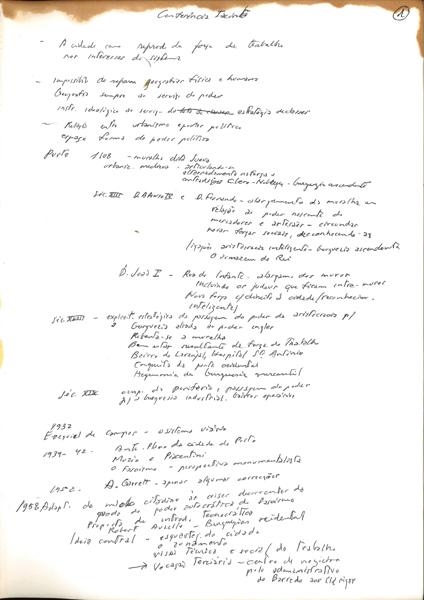 Conferência
1
- A cidade como reprod. da força de trabalho
nos interesses do sistema
- Impossível de separar geografia física e humana
Geografia sempre ao serviço do poder
instr. ideológico ao serviço da estratégia de classes
- Relação entre urbanismo e poder político
espaço forma de poder político
Porto 1108 - muralha dita Sueva
urbanis. medieval
Clero - Nobreza - burguesia ascendente
Séc. XIII D. Afonso IV e D. Fernando - alargamento da muralha em
relação ao poder nascente do
mercador e artesão - circundar
novas forças sociais, reconhecendo-as
ligação aristocracia inteligente - burguesia ascendente
O armazém do Rei
D. João I - Rua do Infante. alargam. dos muros
incluindo os judeus que ficam intra-muros
Nova força c/ direito à cidade (reconhecim.
inteligente)
Séc. XVIII - explicit. estratégica da passagem do poder da aristocracia p/
a burguesia aliada ao poder inglês
Rebenta-se a muralha
Bem estar resultante da força de Trabalho
Bairro do Laranjal, Hospital S. António
Conquista da parte ocidental
Hegemonia da burguesia mercantil
Séc. XIX ocup. da periferia, passagem do poder
p/ a burguesia industrial. bairros operários
1932
Ezequiel de Campos - o sistema viário
1939-42 - Ante-Plano da cidade do Porto
Muzio e Piacentini
O Fascismo - perspectiva monumentalista
1952 - A. Garrett - apenas algumas correcções
1958 Adapt. do citadino às crises decorrentes da
queda do poder autocrático do Fascismo
Proposta de introd. tecnocrática
Robert Auzelle - Burguesia ocidental
Ideia central - esqueleto da cidade
o zonamento
visão técnica e social do trabalho
→ Vocação Terciária - centro de negócios
polo administrativo
do Barredo aos Clérigos